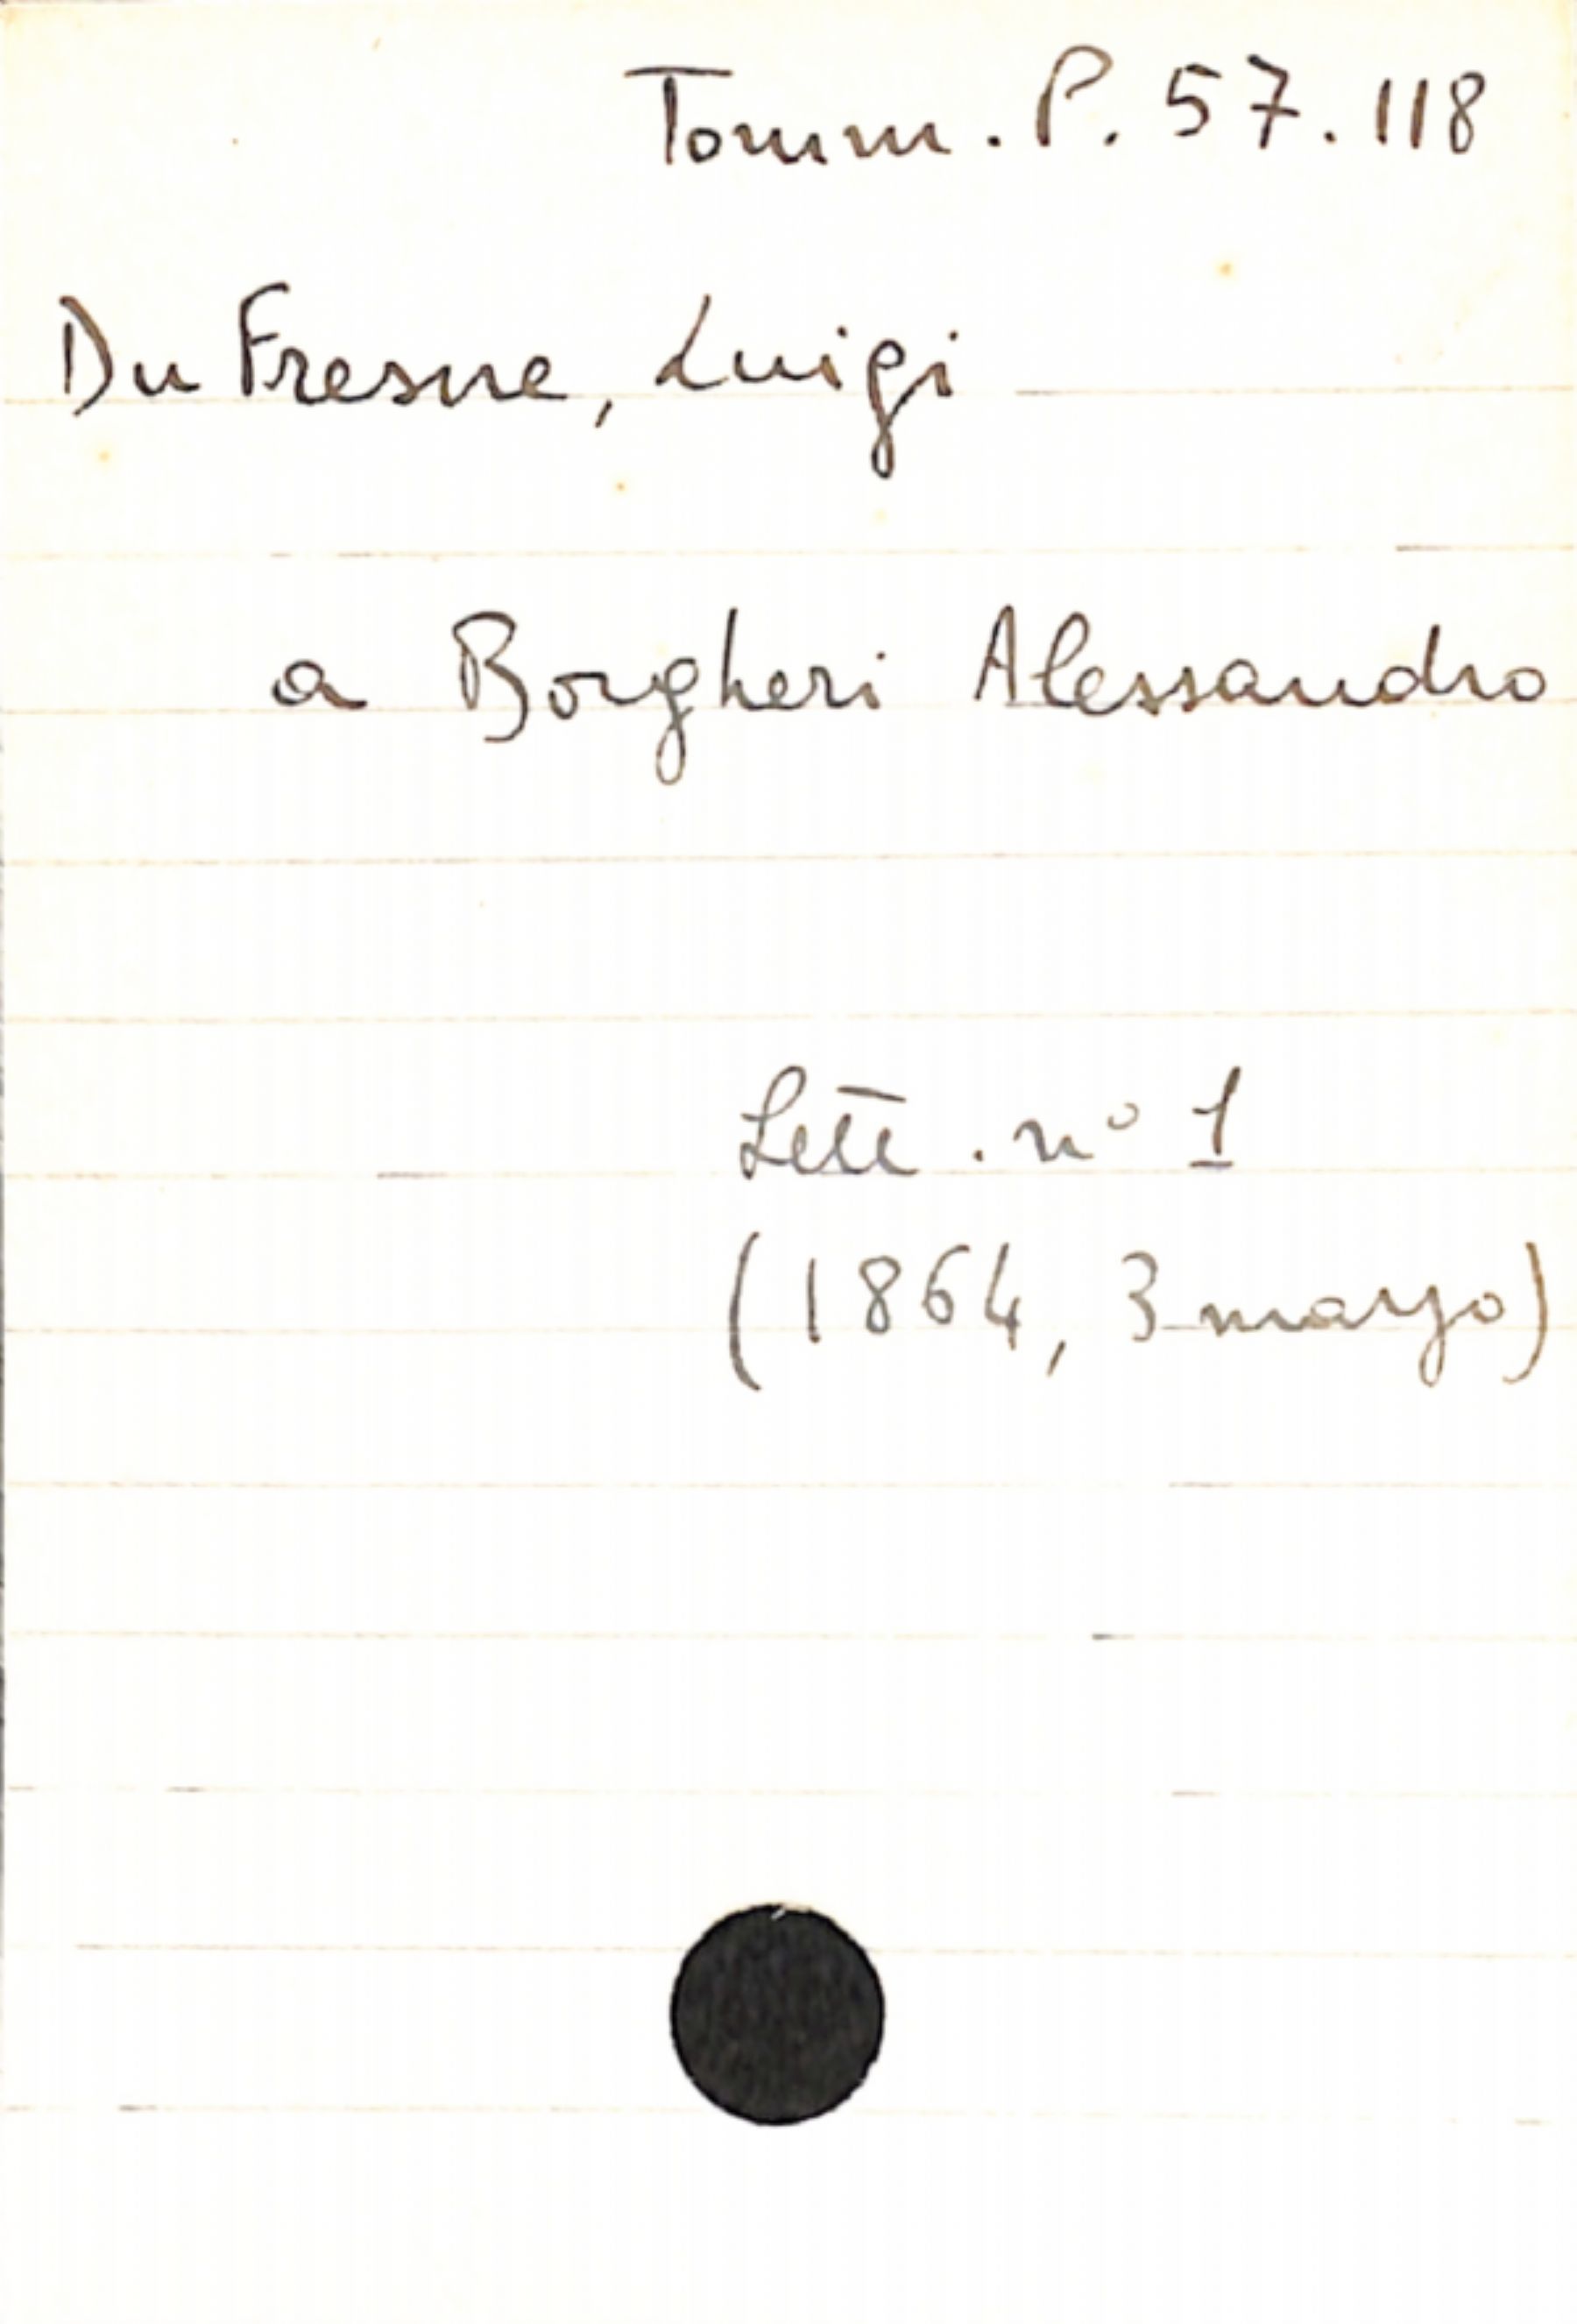 Tomm. P. 57. 118
Du Fresne, Luigi
a Borgheri Alessandro
Lett. n° 1
(1864, 3 marzo)